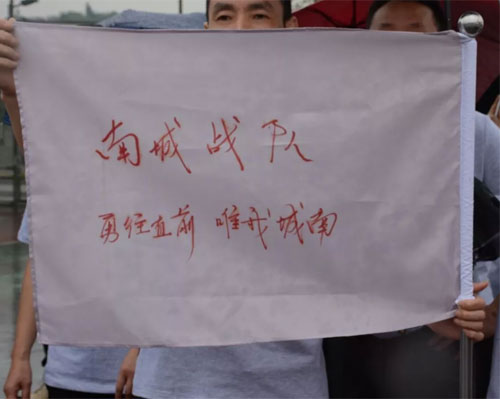 南城战队
勇往直前 唯我城南